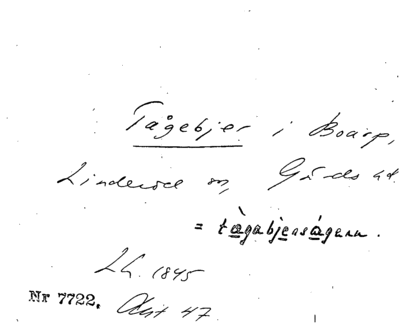 Tågebjer i Boarp,
Linderöds sn, Gärds hd.
= tàgabjerságenn.
Lh. 1845
Nr 7722. Avst 47